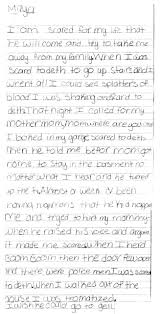 Miaya
I am scared for my life that
he will come and try to take me
away from my family When I was
scared to deth to go up stairs and I
went all I could see splatters of
blood I was shaking and scard to
deth That night I called for my
mother mommy mom where are you and
I looked in my garage scared to deth
Then he told me befor mom got
home to stay in the basment no
matter what I hear and he tiered
up the tv. Almost a week I'v been
having nightmars that he hid
me and tryed to hurt my mommy
when he raised his voice and
it made me scared when I herd
boom boom then the door few open
and there were police men I was scared
to deth when I walked out of the
house I was tromatized.
I wish he could go to jail